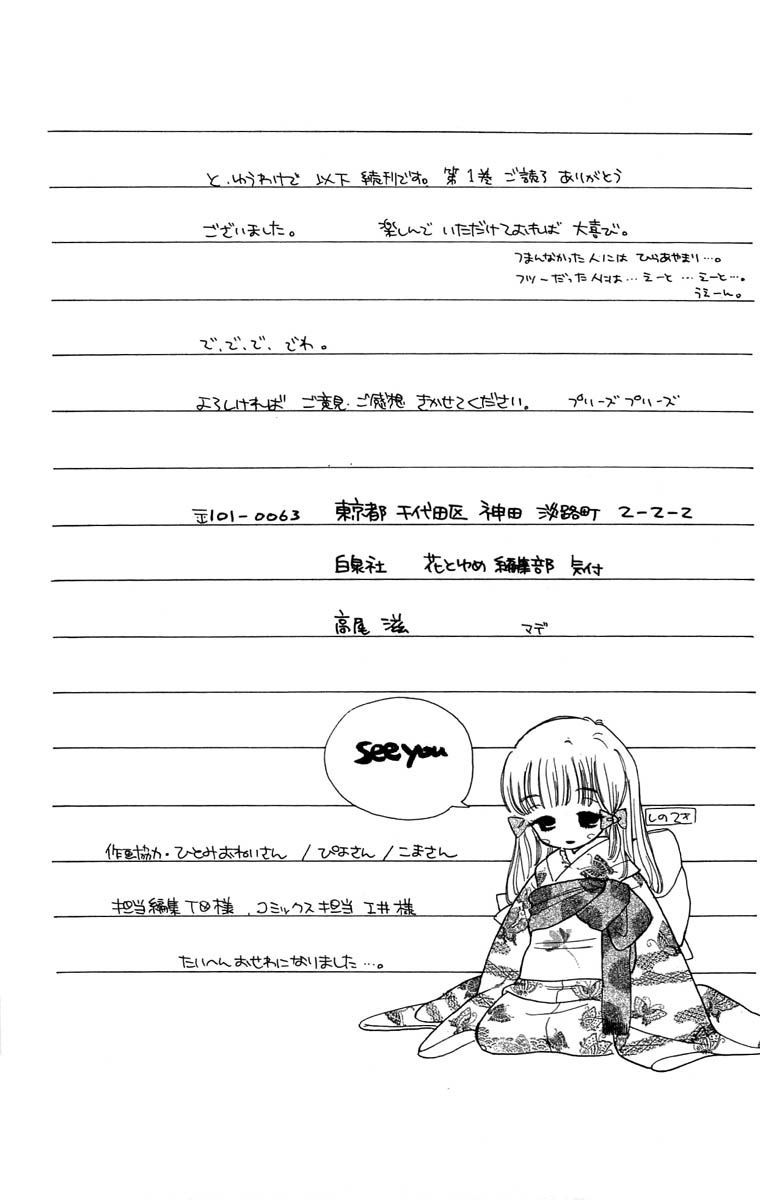 と、ゆうわけで 以下 続刊です。第1巻 ご読了 ありがとう
ございました。 楽しんで いただけておれば 大喜び。
つまんなかった人には ひらあやまり…。
フツーだった人には… えーと … えーと…。
うえーん。
で、で、で、でわ。
よろしければ ご意見・ご感想 きかせてください。 プリーズ プリーズ
〒101-0063 東京都 千代田区 神田 淡路町 2-2-2
白泉社 花とゆめ 編集部 気付
高尾 滋 マデ
see you
しのてさ
作画協力・ひとみおねいさん /ぴよさん /こまさん
担当編集 T 様 、コミックス担当 工井 様
たいへん おせわになりました…。